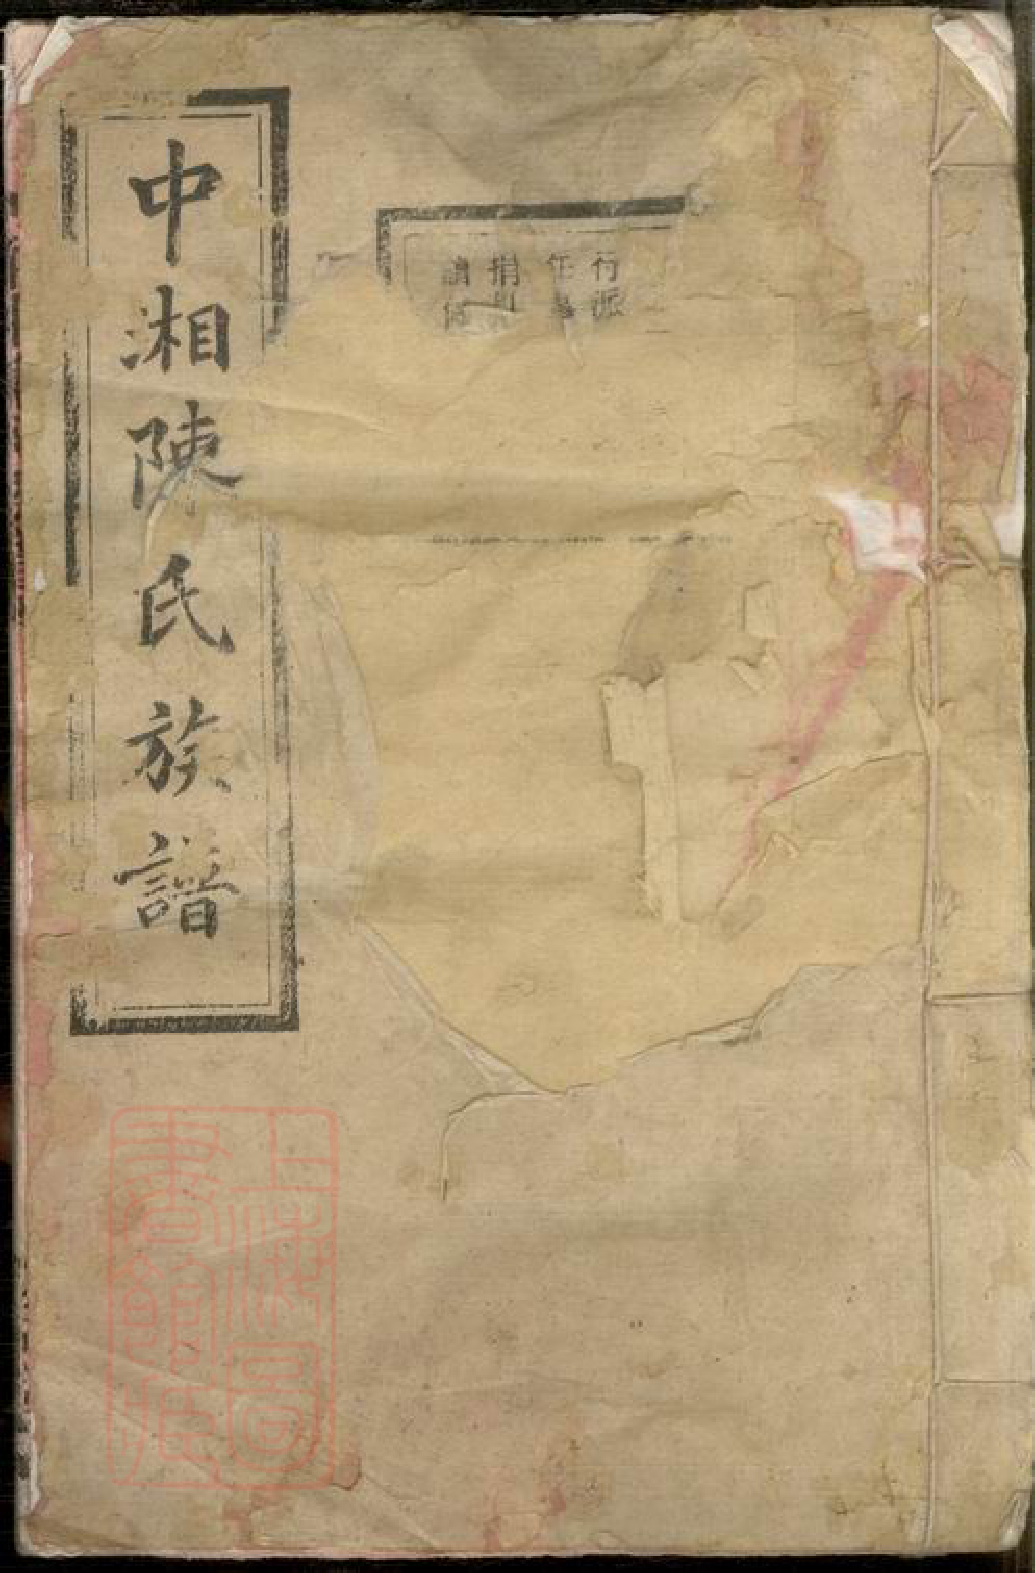 中湘陳氏族譜
行派
捐
上海圖書館藏